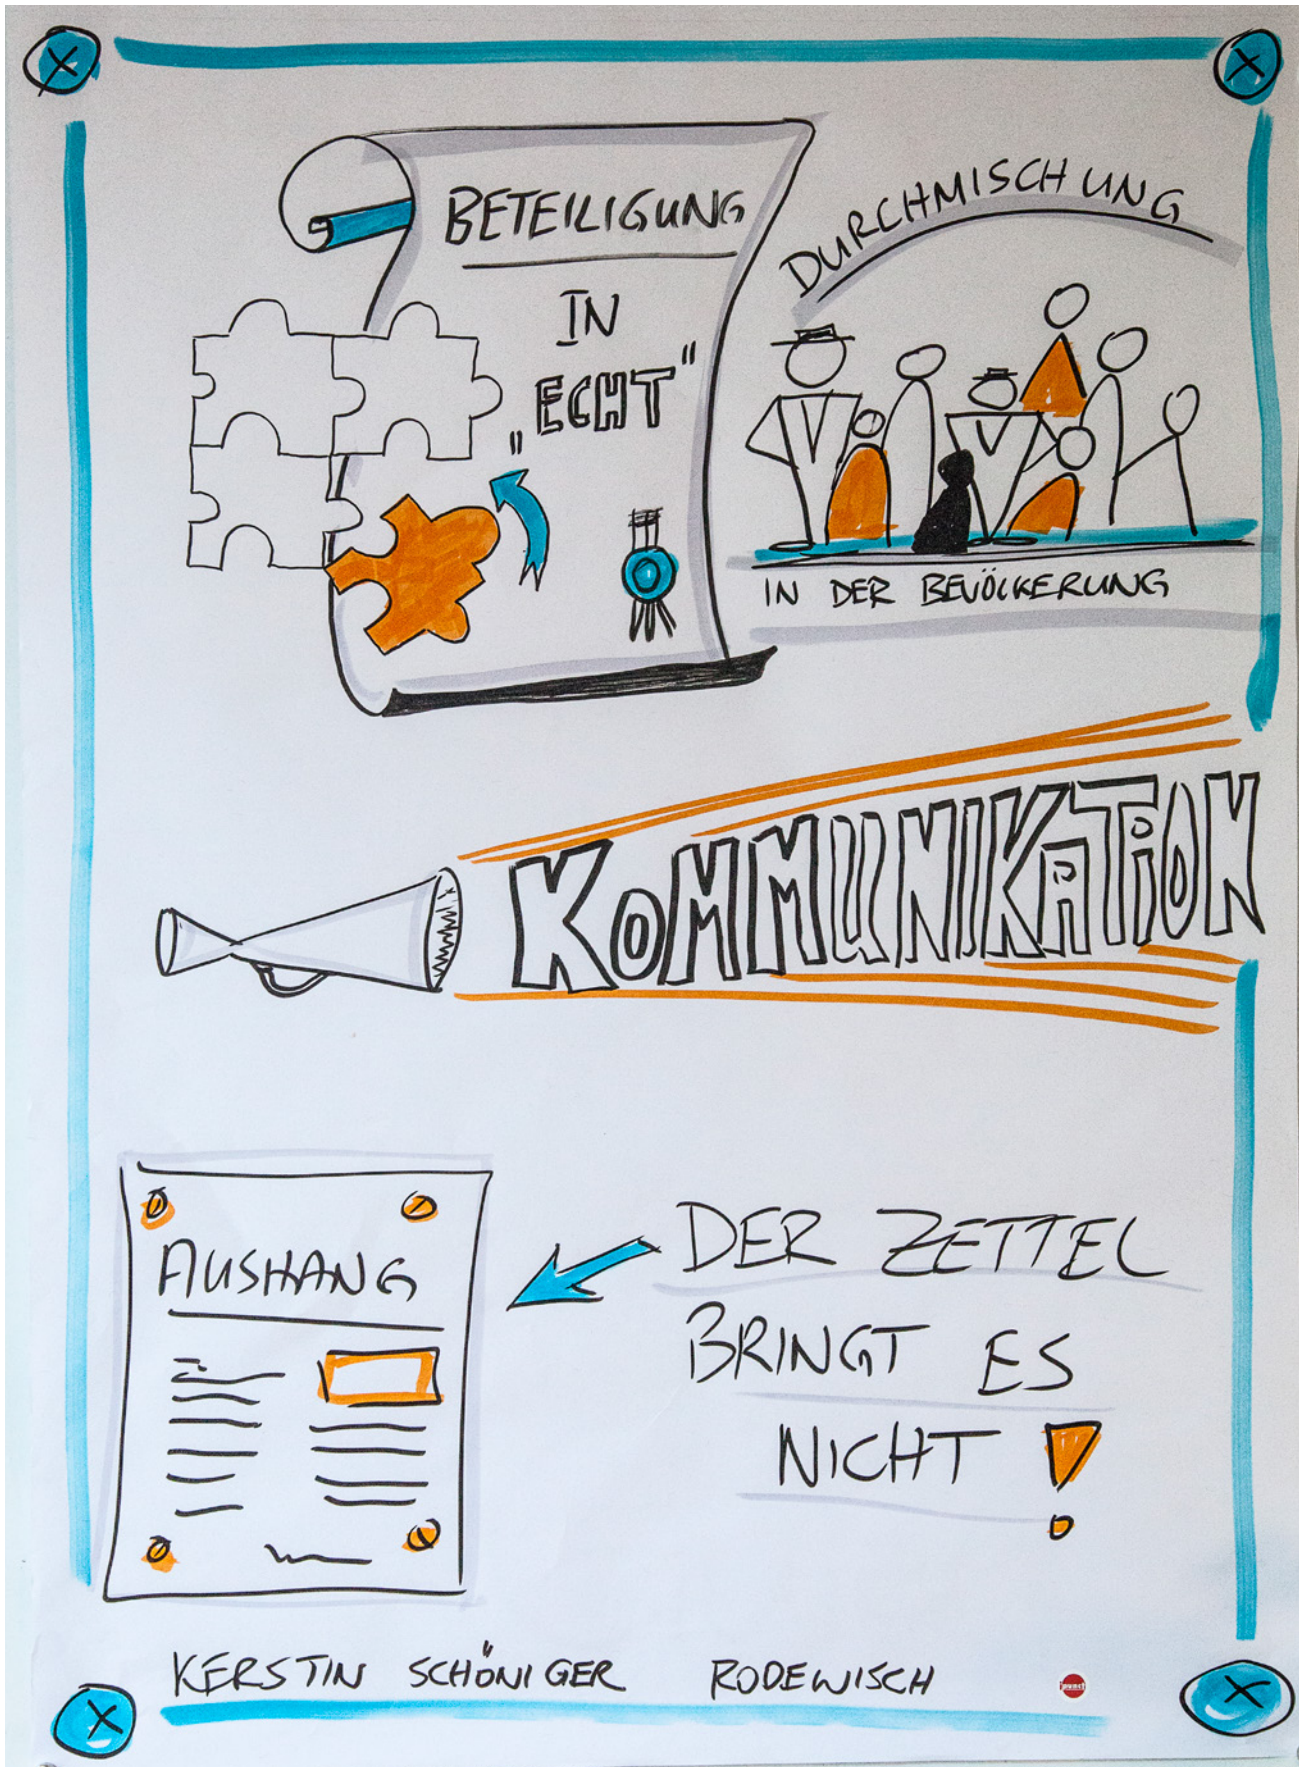 BETEILIGUNG
IN
„ECHT"
DURCHMISCHUNG
IN DER BEVÖLKERUNG
KOMMUNIKATION
AUSHANG
DER ZETTEL
BRINGT ES
NICHT!
KERSTIN SCHÖNIGER RODEWISCH